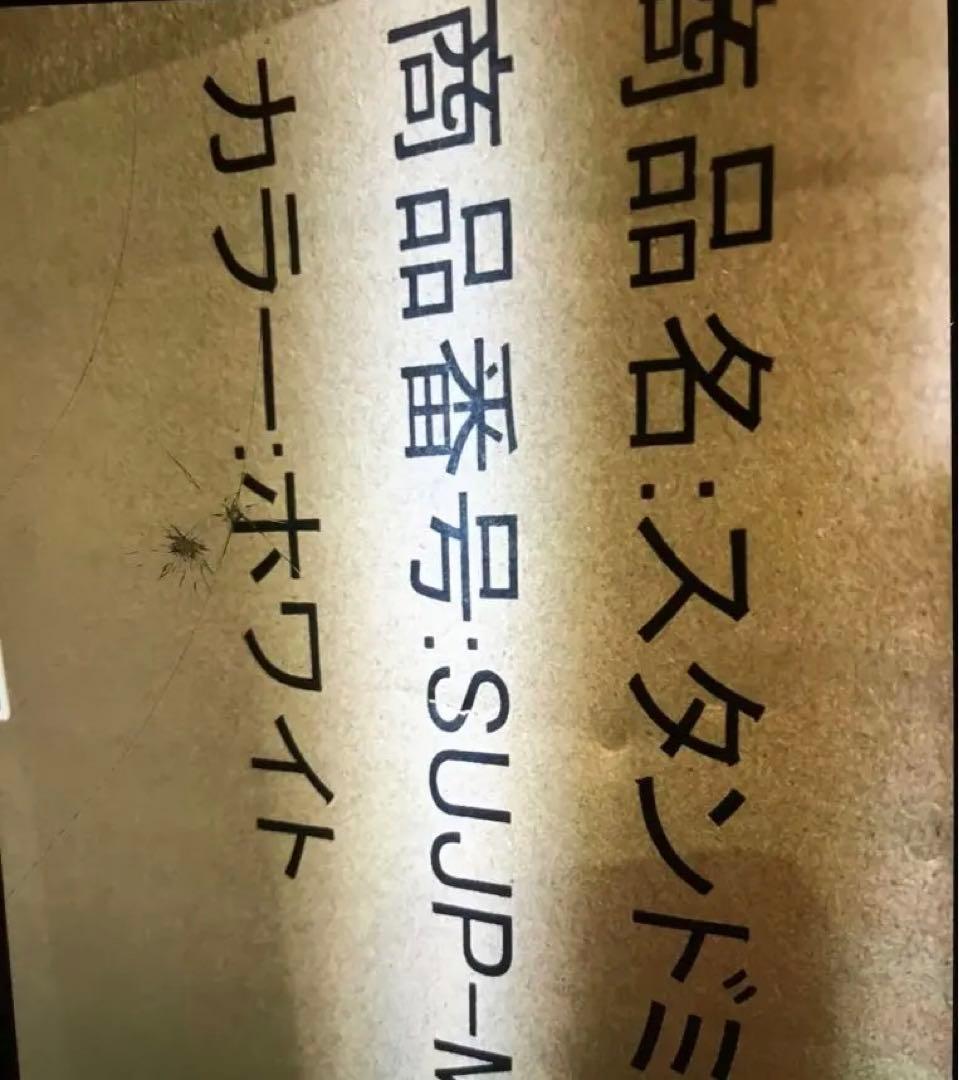 商品名:スタンドミ
商品番号:SUJP-M
カラー:ホワイト